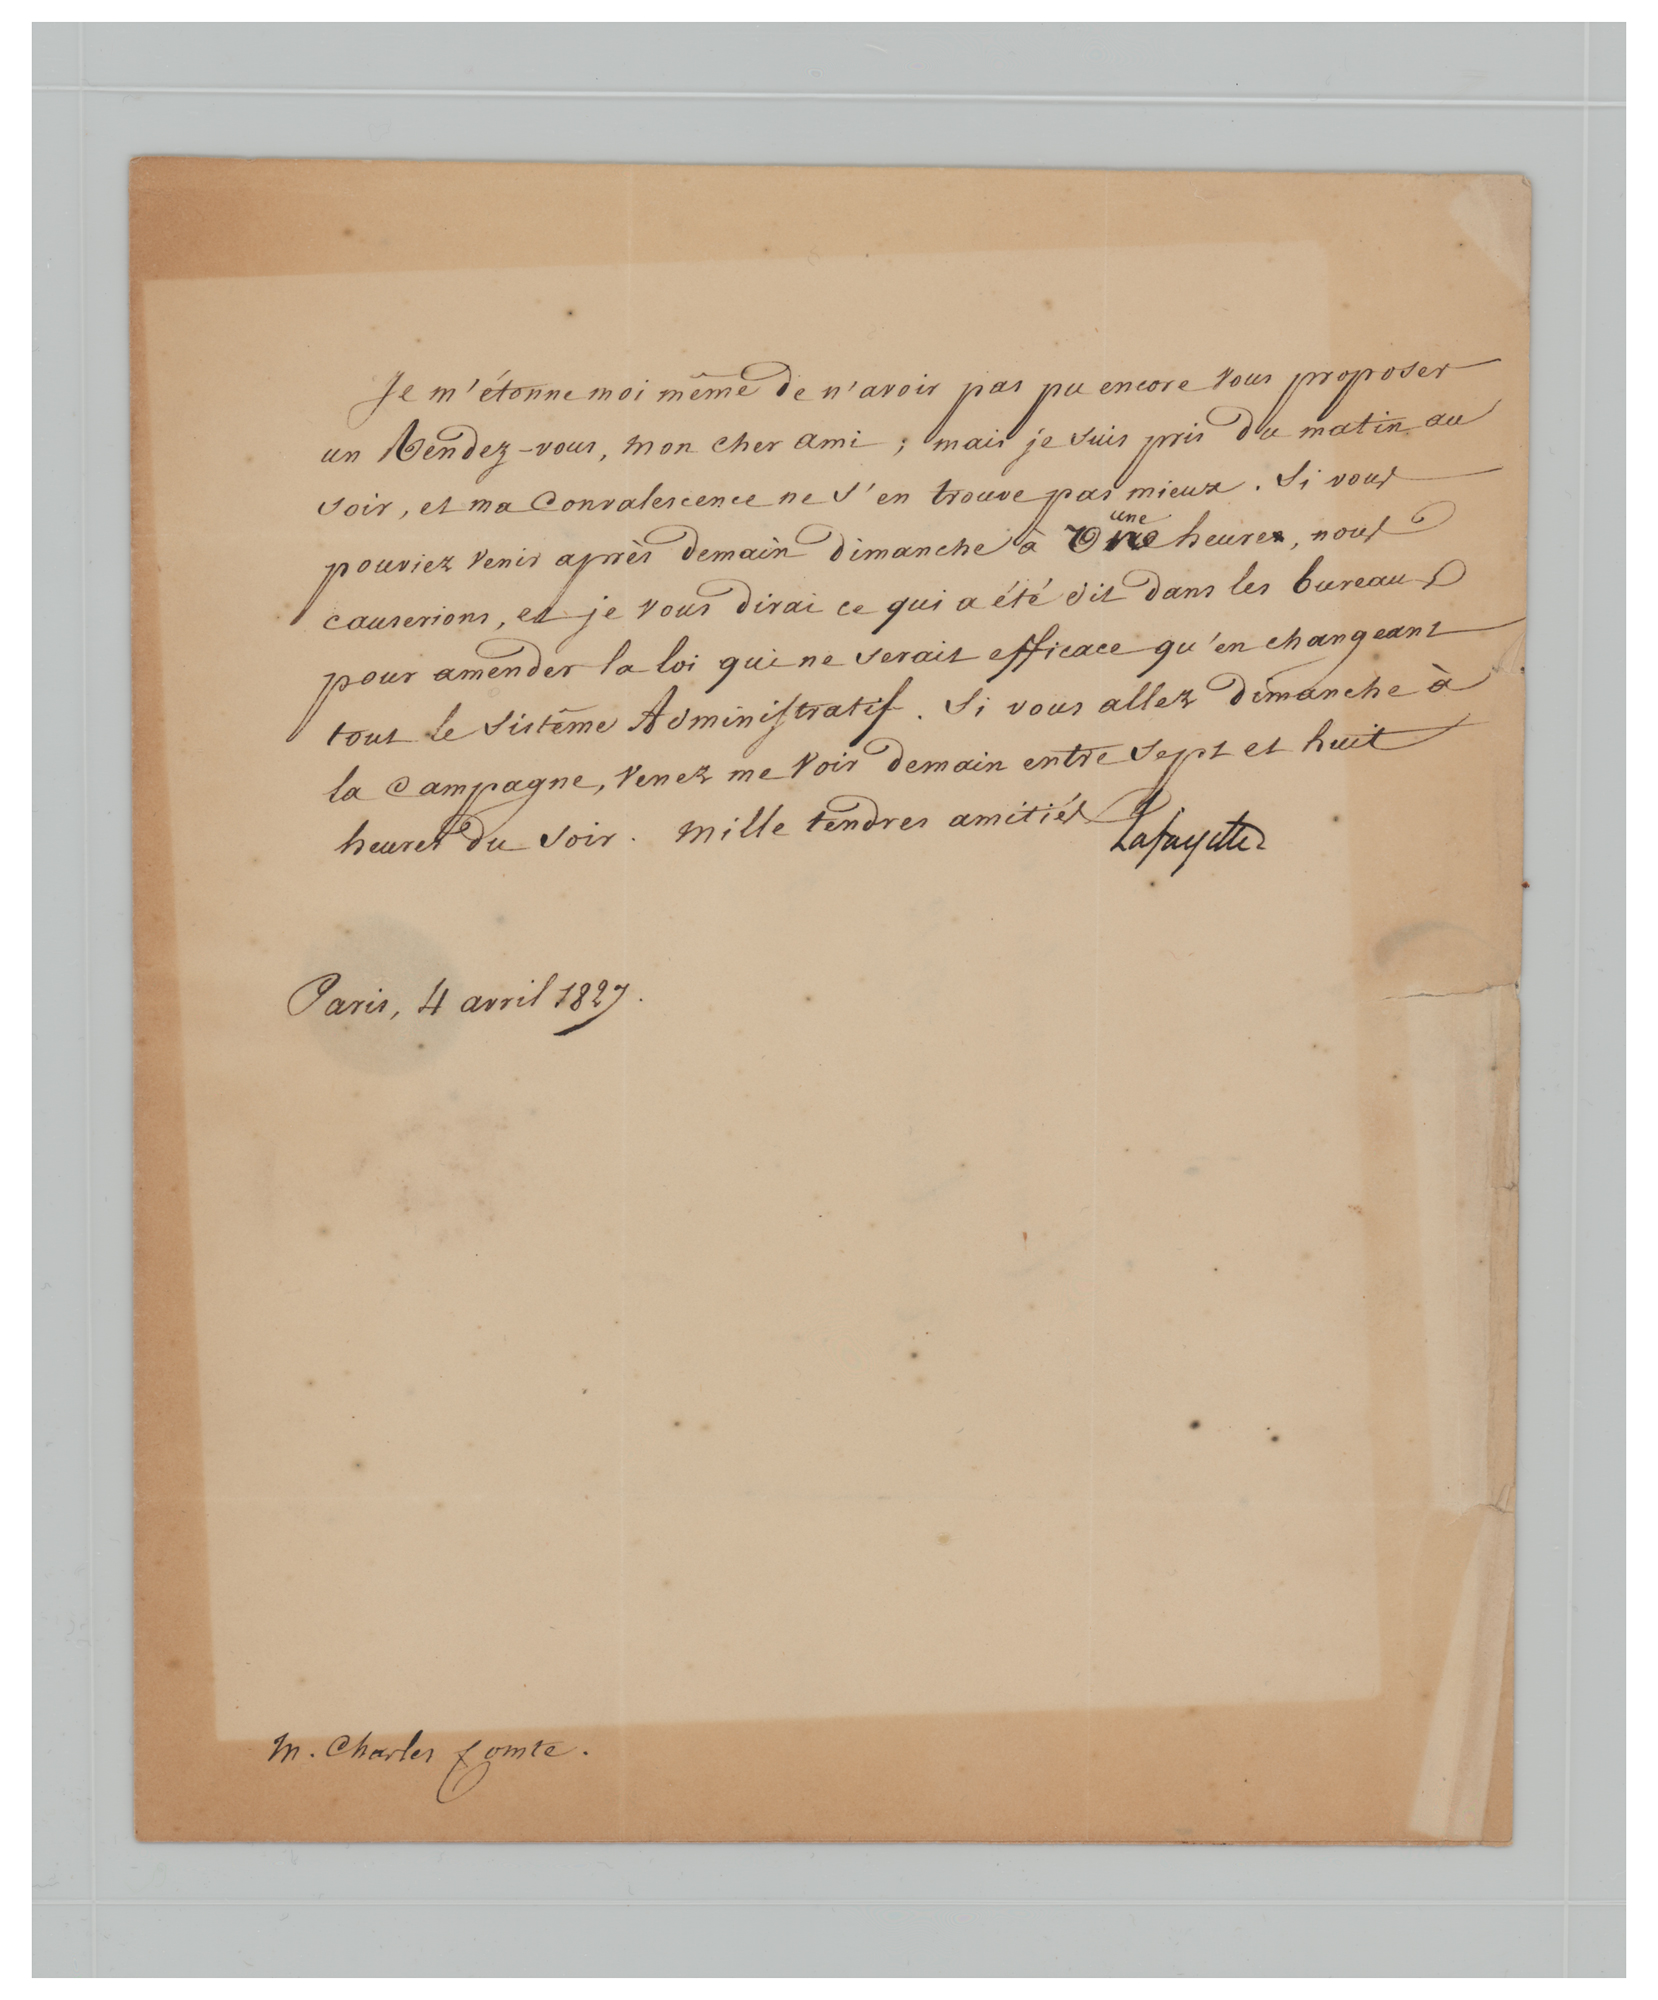 Je m'étonne moi même de n'avoir pas pu encore vous proposer
un Rendez-vous, mon cher ami ; mais je suis pris du matin au
soir, et ma Convalescence ne s'en trouve pas mieux. Si vous
pouviez venir après demain dimanche à une heure, nous
causerions, et je vous dirai ce qui a été dit dans les bureaux
pour amender la loi qui ne serait efficace qu'en changeant
tout le sistême Administratif. Si vous allez dimanche à
la Campagne, venez me voir demain entre sept et huit
heures du soir. Mille tendres amitiés
Lafayette
Paris, 4 avril 1827.
M. Charles Comte.